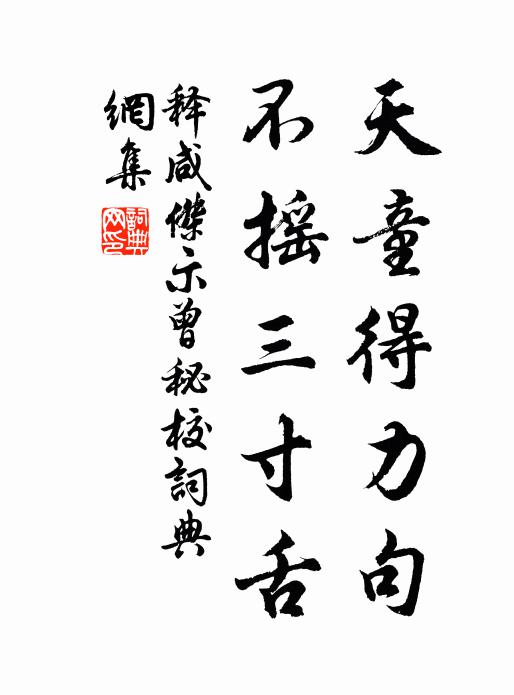 天童得力句
不摇三寸舌
释咸傑示曾秘校詞典
網集
詞典
网印